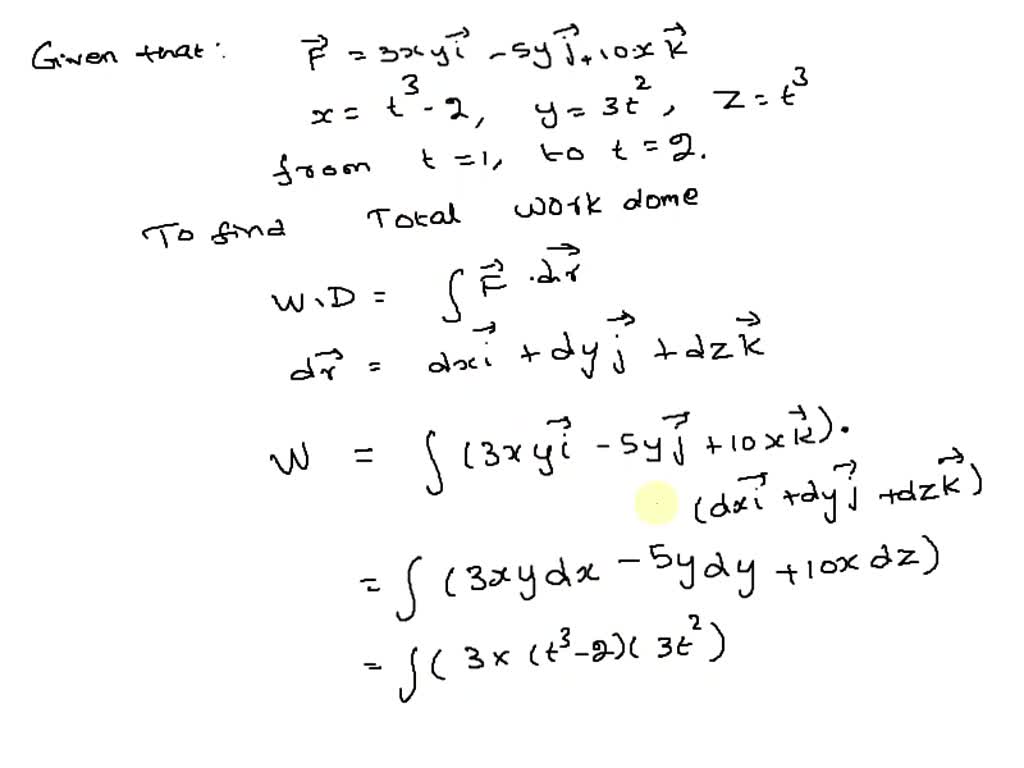 Given that: F⃗ = 3xyi⃗ - 5yj⃗ + 10xk⃗
x = t³ - 2, y = 3t², z = t³
from t = 1, to t = 2.
To find Total work dome
W.D = ∫ F⃗ . dr⃗
dr⃗ = dxi⃗ + dyj⃗ + dzk⃗
W = ∫ (3xyi⃗ - 5yj⃗ + 10xk⃗).
(dxi⃗ + dyj⃗ + dzk⃗)
= ∫ (3xydx - 5ydy + 10xdz)
= ∫ ( 3x (t³-2)( 3t²)